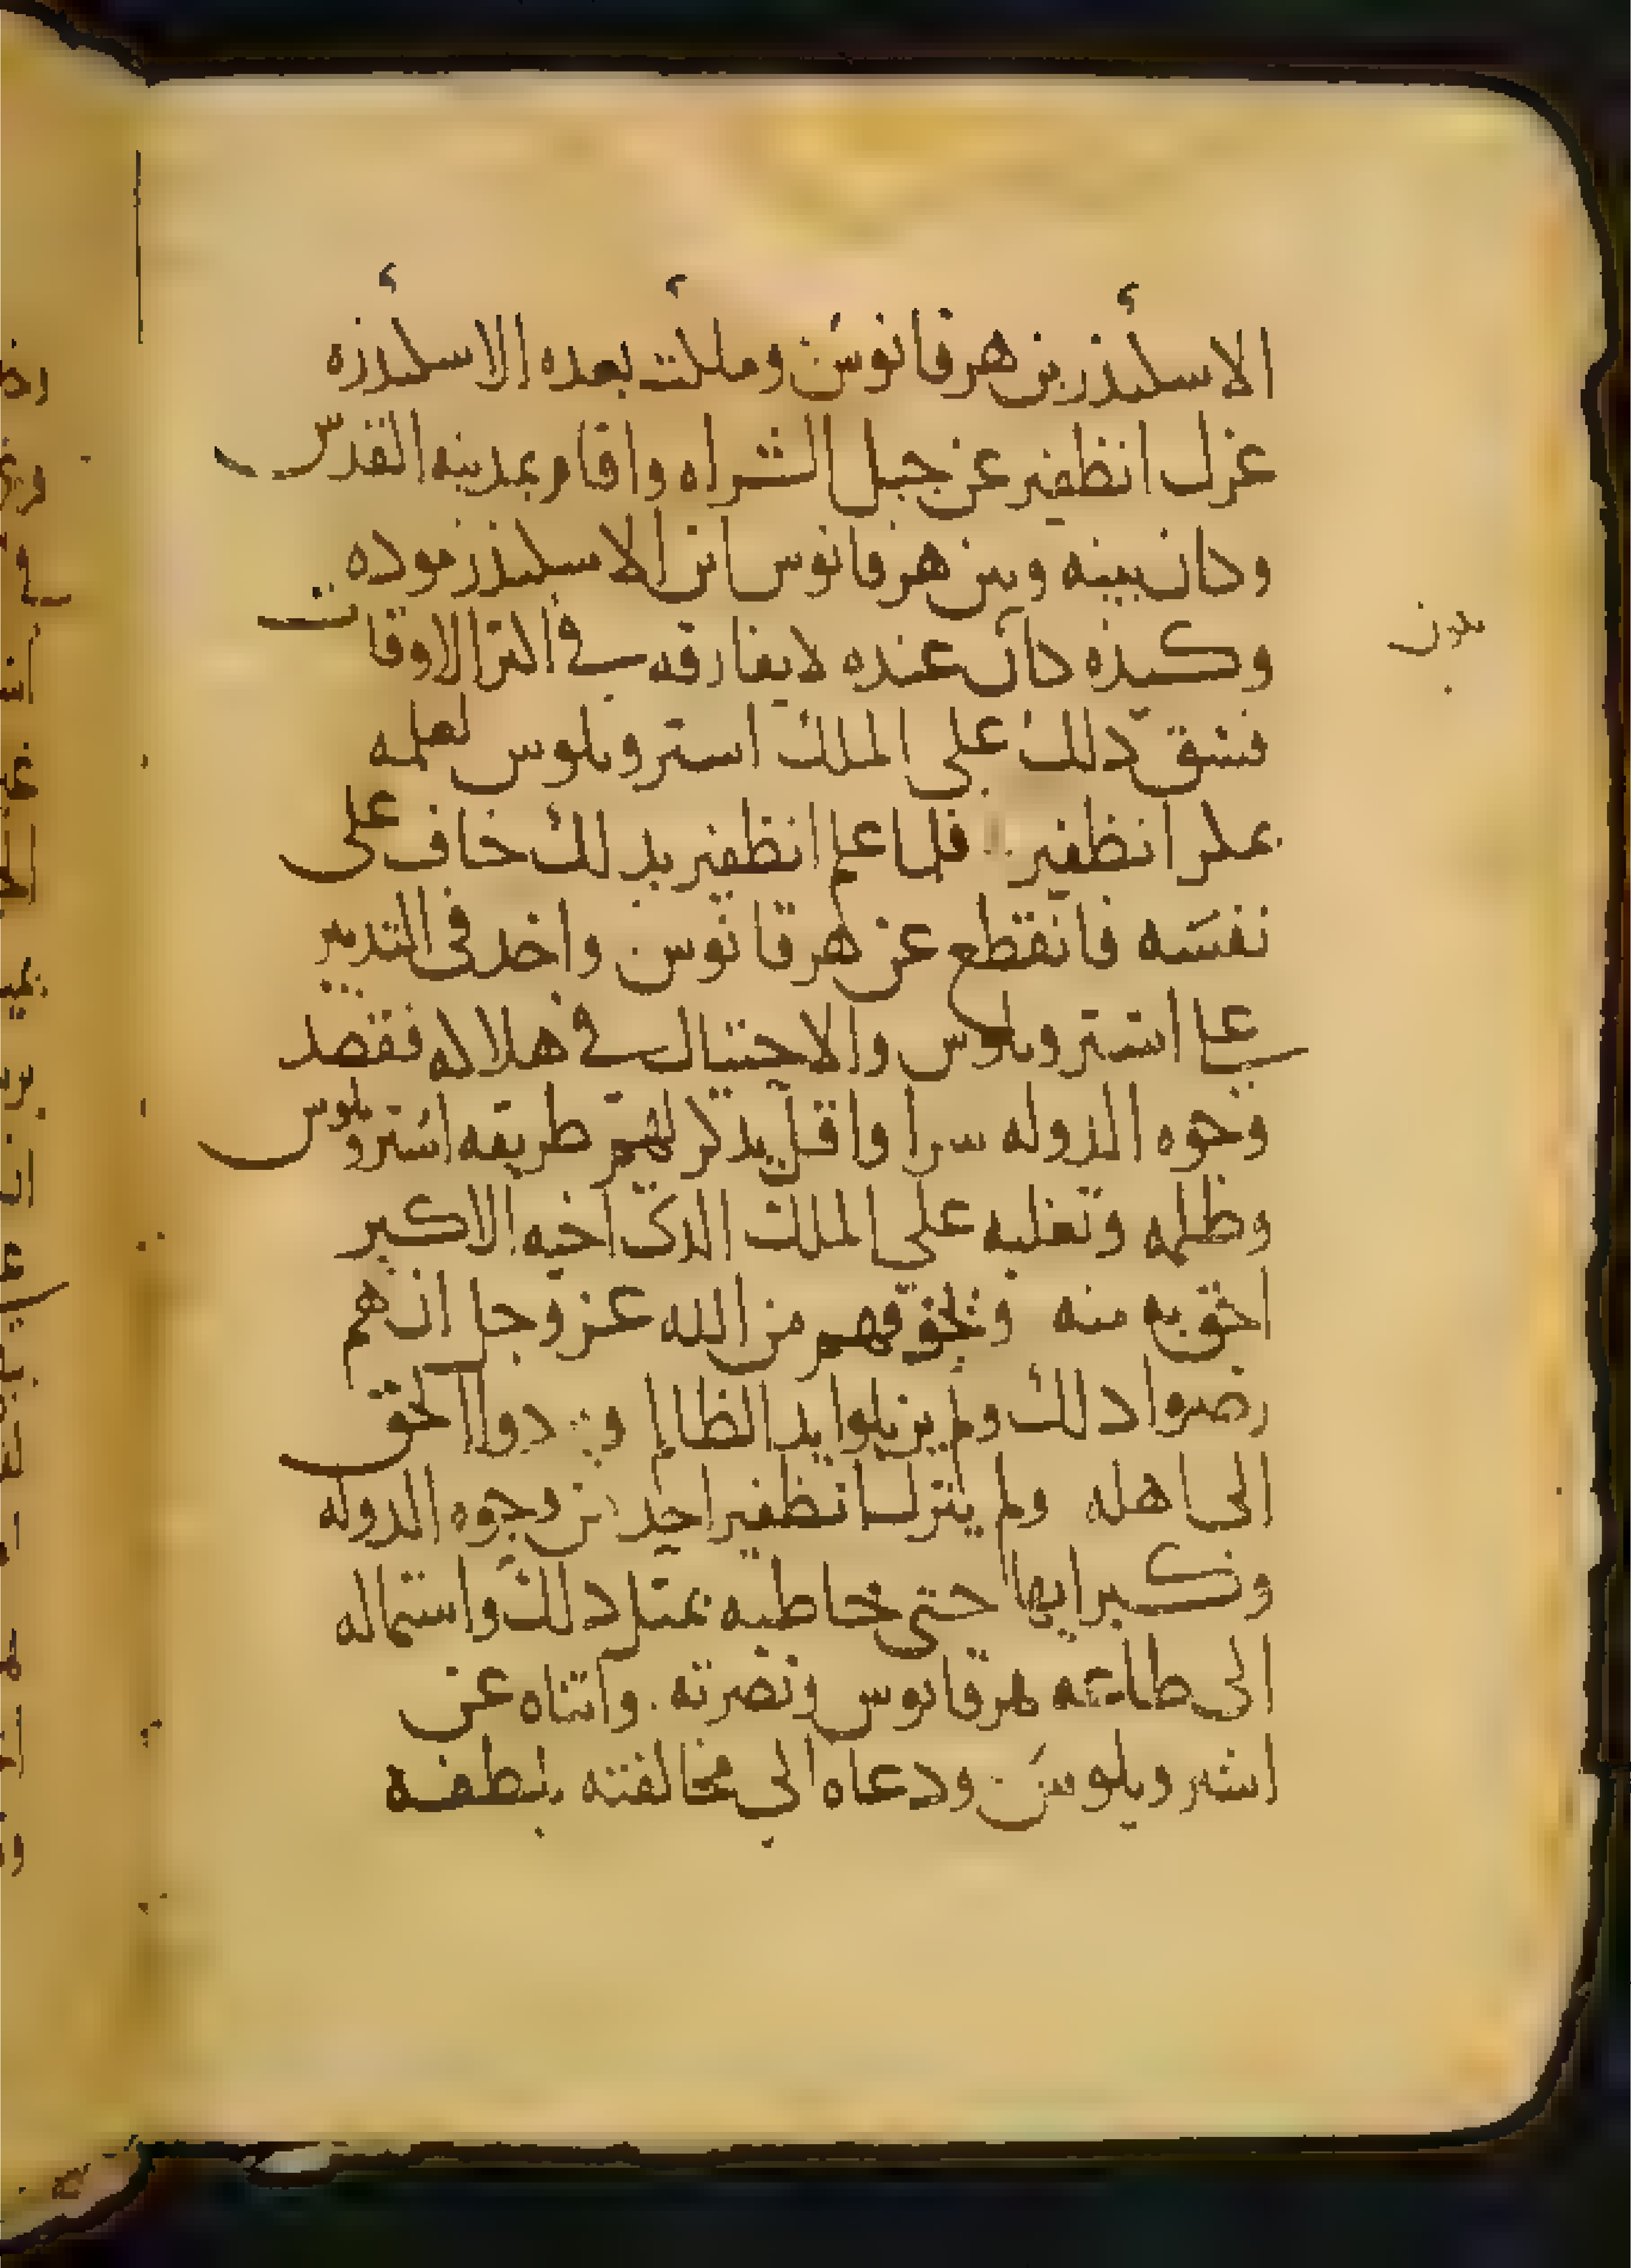 الاسكندر بن هرقانوس وملكت بعده الاسكندره
عزل انظفير عن جبل الشراه واقام بمدينه القدس
وكان بينه وبين هرقانوس ابن الاسكندر موده
وكيده كان عنده لا يفارقه في اكثر الاوقات
فشق ذلك على الملك استروبلوس لعلمه
بمكر انظفير فلما علم انظفير بدلك خاف على
نفسه فانقطع عن هرقانوس واخد في التدبير
على استروبلوس والاحتيال في هلاكه فقصد
وجوه الدوله سرا واقبل يدكر لهم طريقه استروبلوس
وظلمه وتغلبه على الملك الدي اخيه الاكبر
احق به منه ويخوفهم من الله عز وجل انهم
رضوا دلك ولم يزيلوا يد الظالم دوا الحق
الى اهله ولم يترك انظفير احد من وجوه الدوله
وكبرايها حتى خاطبه بمثل دلك واستماله
الى طاعه هرقانوس ونصرته. واثناه عن
استروبلوس ودعاه الي مخالفته بلطفه